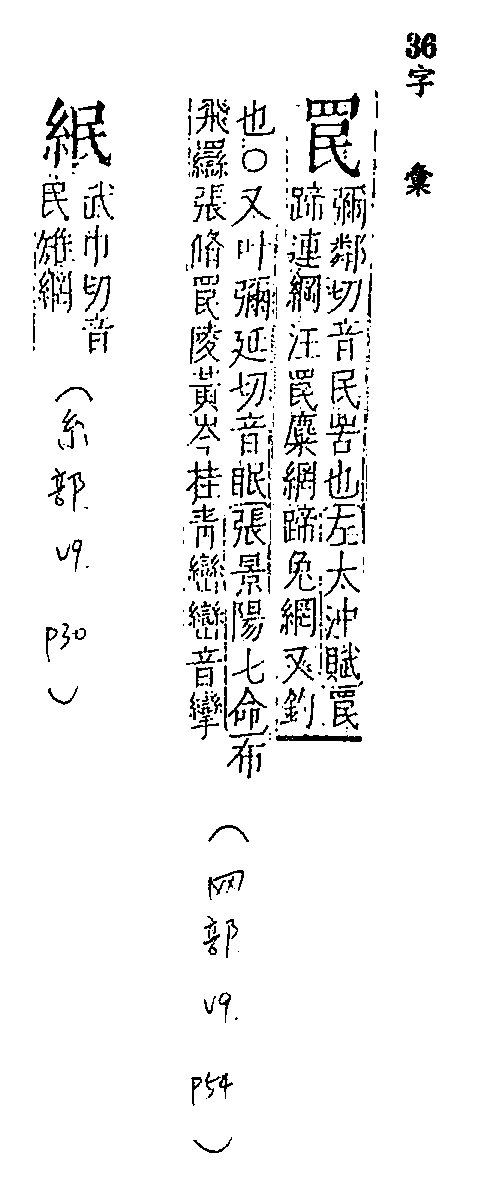 36 字彙
罠 彌鄰切音民罟也左太沖賦罠
蹄連網汪罠麋網蹄兔網又釣
也○又叶彌延切音眠張景陽七命布
飛羉張脩罠陵黃岑挂青巒巒音攣
(网部 v9. p54)
緡 武巾切音
民雉網
(糸部 v9. p30)